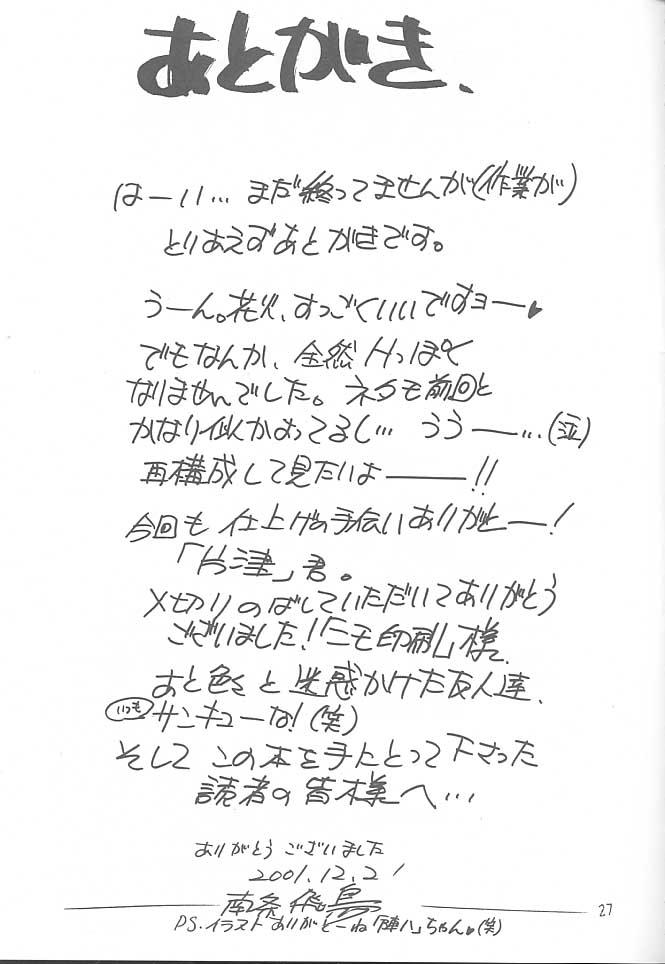 あとがき、
はーい… まだ終ってませんが(作業が)
とりあえずあとがきです。
うーん。花火、すっごくいいですョー♥
でもなんか、全然Hっぽく
なりませんでした。ネタも前回と
かなり似かよってるし… うぅー…(泣)
再構成して見たいよ――!!
今回も 仕上げの手伝いありがとー!
「片津」君。
〆切りのばしていただいてありがとう
ございました!「ニモ印刷」様。
あと色々と迷惑かけた友人達、
いつもサンキューな!(笑)
そして この本を手にとって下さった
読者の皆様へ…
ありがとう ございました
2001.12.21
南条飛鳥
P.S.イラストありがとーね「陣八」ちゃん♥(笑)
27